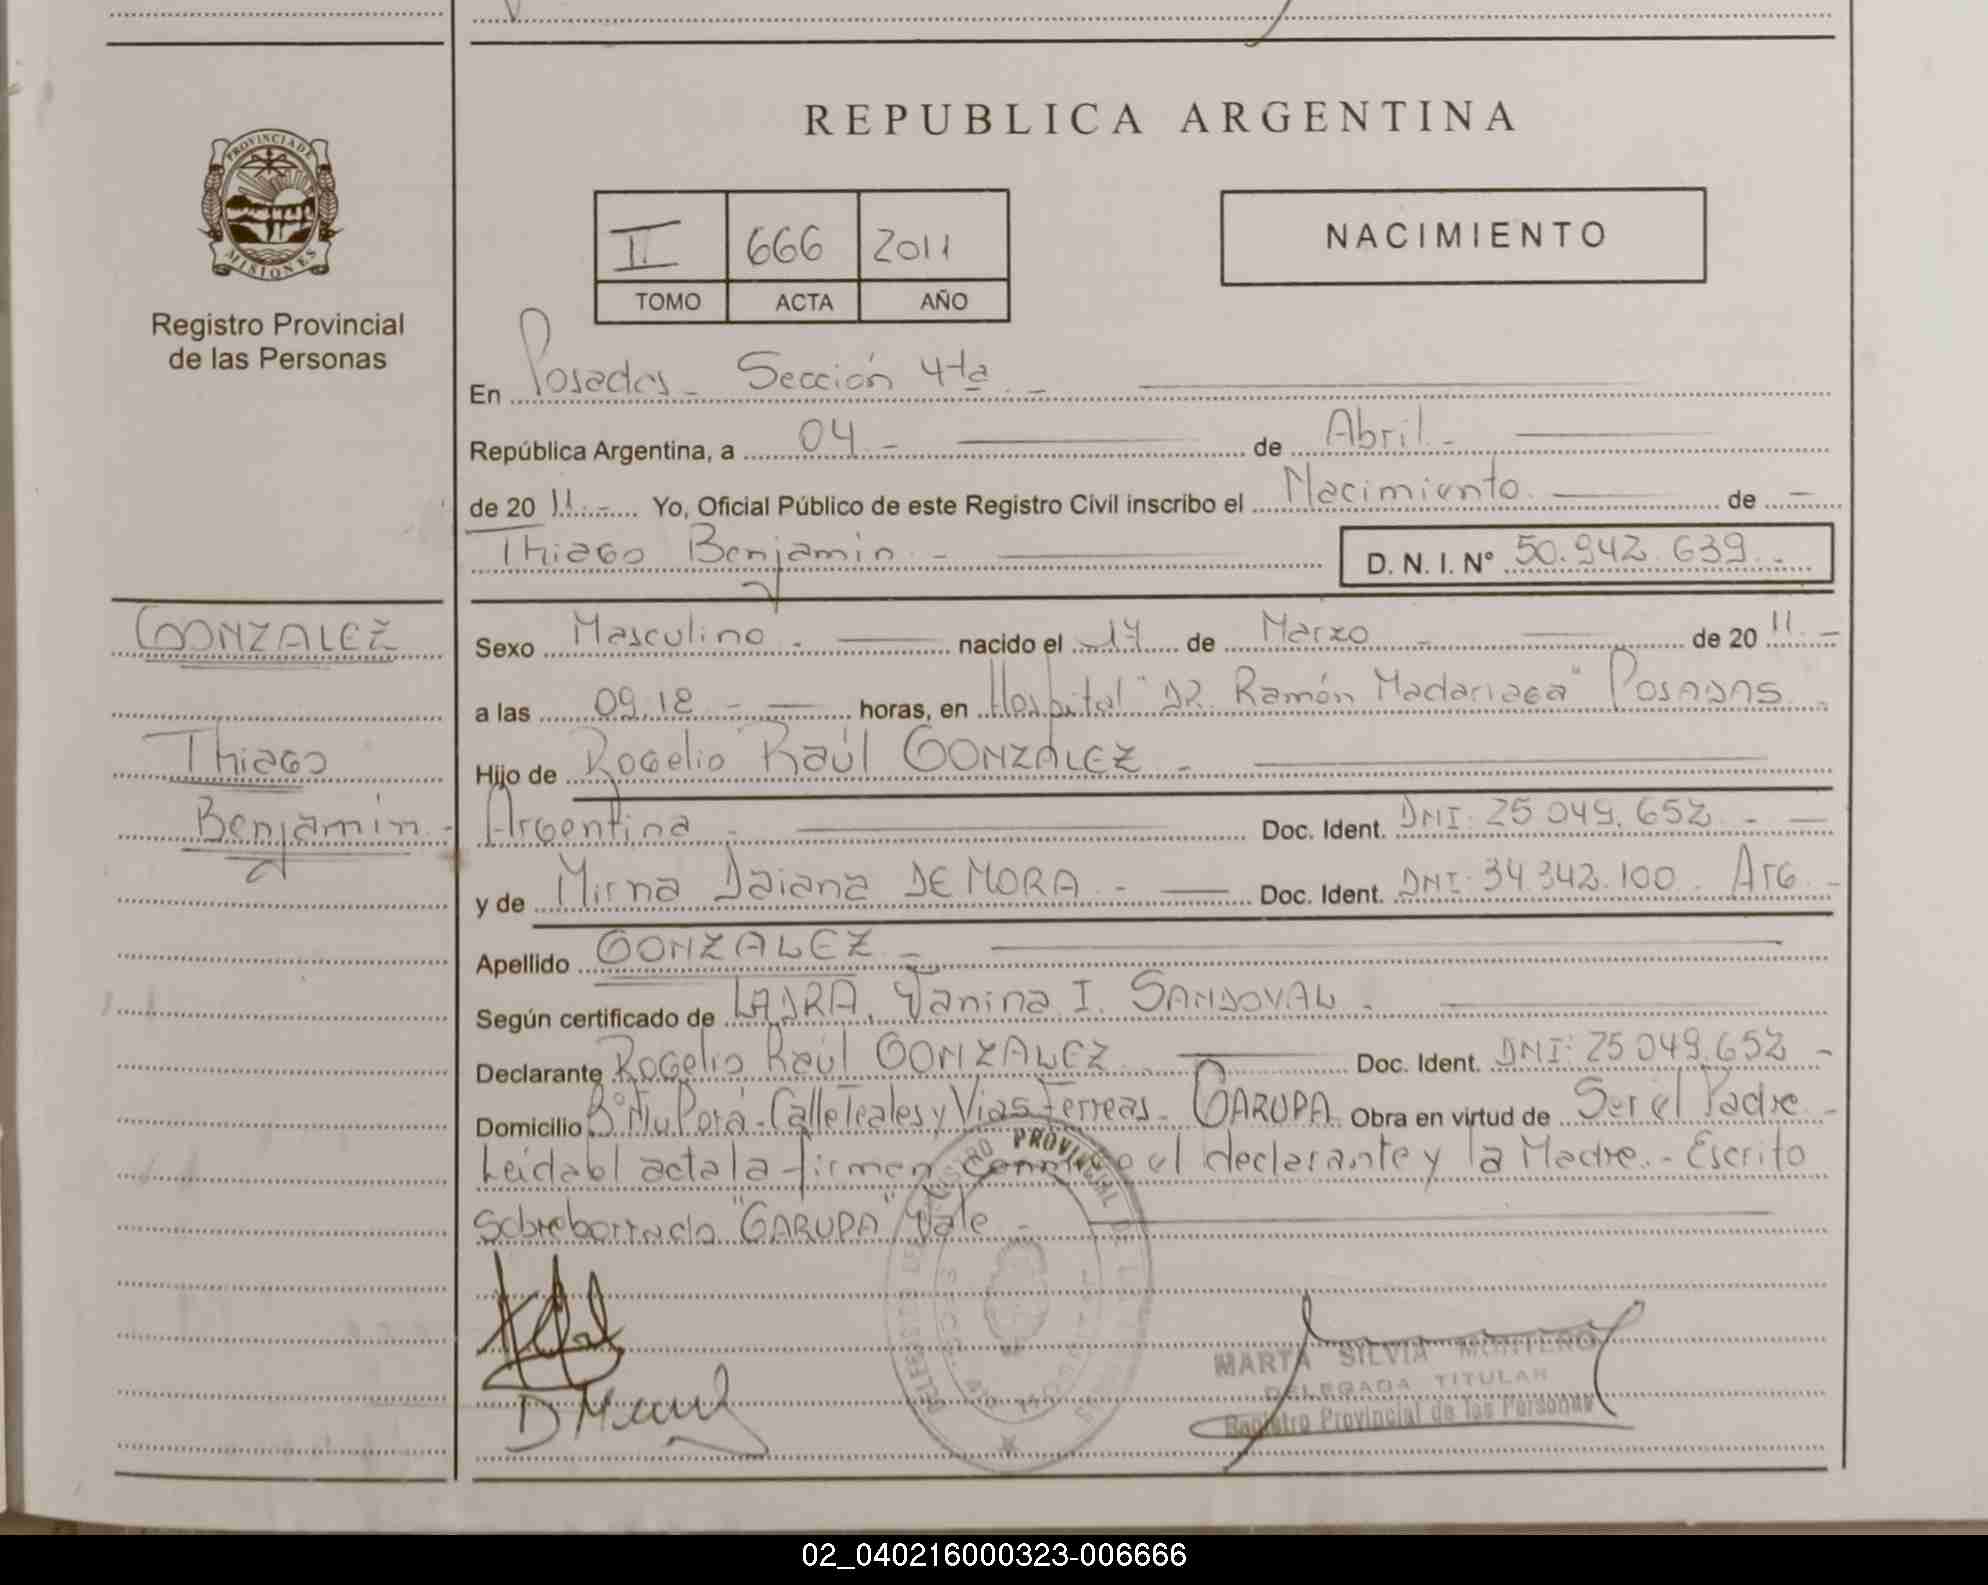 REPUBLICA ARGENTINA
PROVINCIA DE
MISIONES
Registro Provincial
de las Personas
II 666 2011
TOMO ACTA AÑO
NACIMIENTO
En Posadas - Sección 4ta. -
República Argentina, a 04 - de Abril -
de 20 11. - Yo, Oficial Público de este Registro Civil inscribo el Nacimiento. de -
Thiago Benjamin. -
D. N. I. Nº 50.942.639. -
GONZALEZ
Thiago
Benjamin. -
Sexo Masculino. - nacido el 17 de Marzo - de 20 11. -
a las 09,18 - horas, en Hospital "DR. Ramón Madariaga" POSADAS. -
Hijo de Rogelio Raúl GONZALEZ -
Argentina - Doc. Ident. DNI: 25.049.652 - -
y de Mirna Daiana DE MORA. - Doc. Ident. DNI: 34.342.100. Arg. -
Apellido GONZALEZ. -
Según certificado de Yanina I. SANDOVAL -
Declarante Rogelio Raúl GONZALEZ Doc. Ident. DNI: 25.049.652 -
Domicilio Bº Ñu Porá - Calle Teales y Vias Ferreas - GARUPA. Obra en virtud de Ser el Padre -
Leida el acta la firman conmigo el declarante y la Madre. - Escrito
Sobreborrado "GARUPA" Vale -
PROVINCIAL DE
MARTA SILVIA MONTENO
DELEGADA TITULAR
Registro Provincial de las Personas
02_040216000323-006666